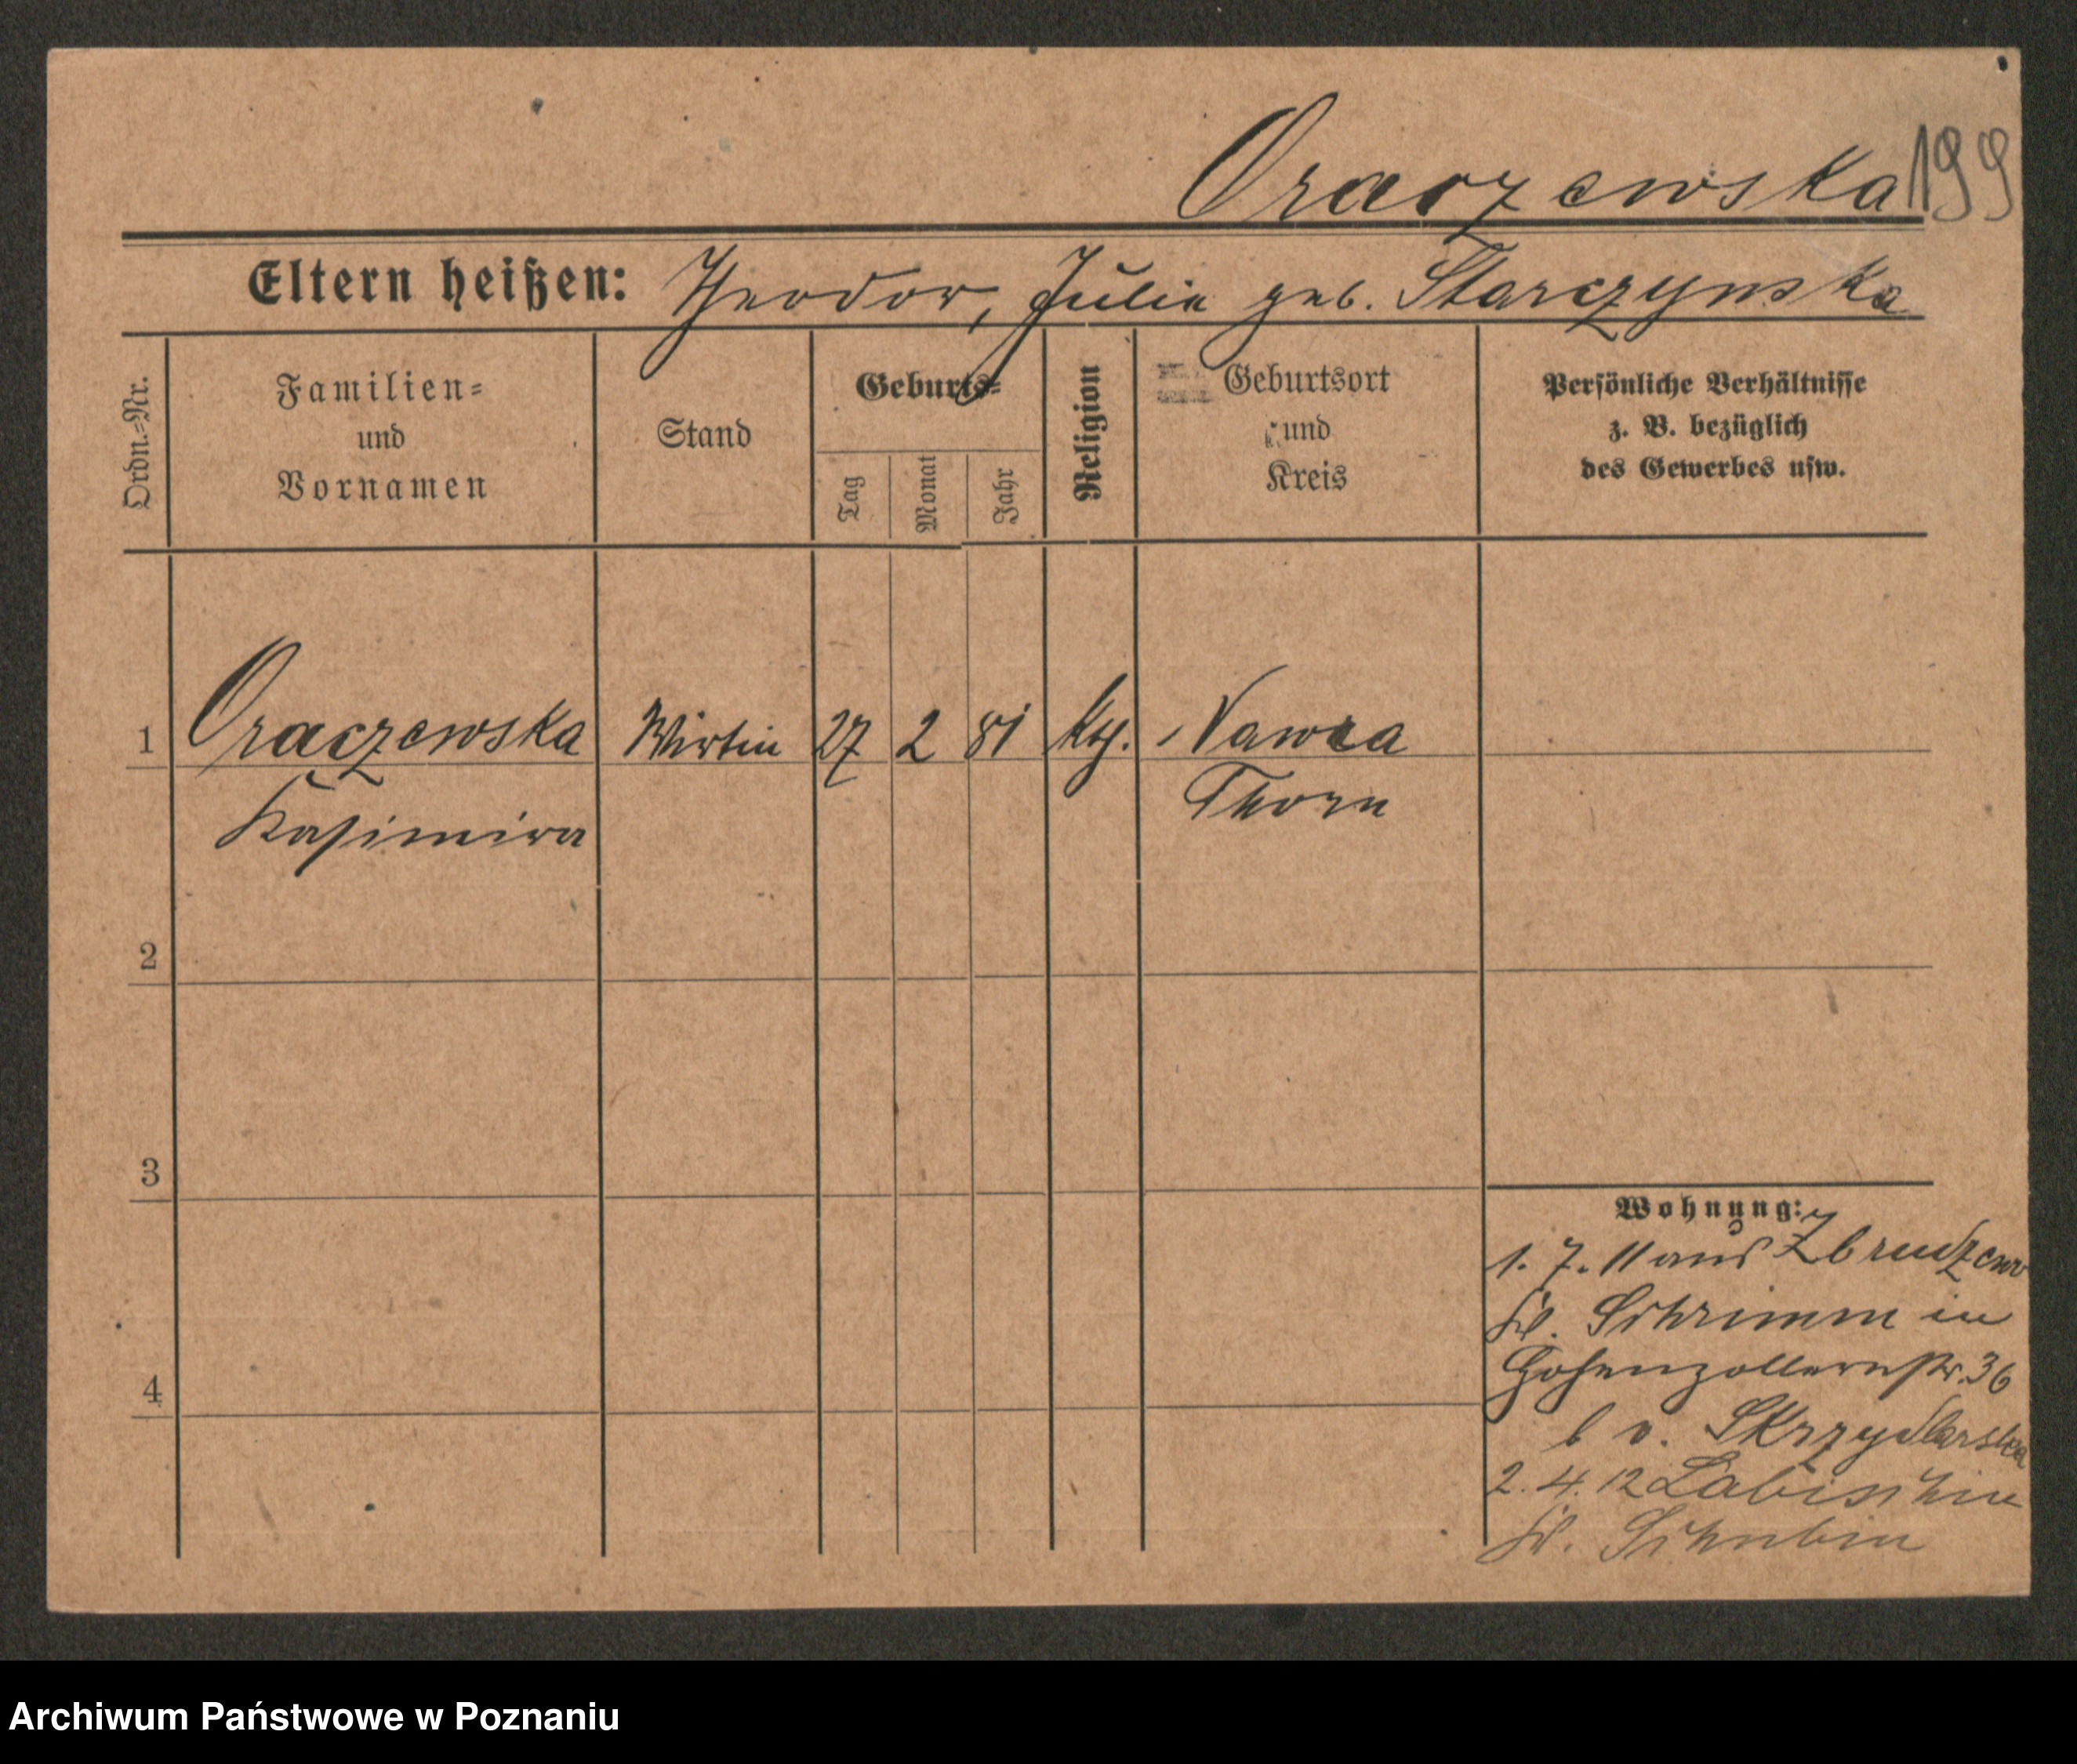 Oraczewska 199
Eltern heißen: Theodor, Julie geb. Starczynska
Ordn.=Nr.
Familien=
und
Vornamen
Stand
Geburts=
Tag
Monat
Jahr
Religion
Geburtsort
und
Kreis
Persönliche Verhältnisse
z. B. bezüglich
des Gewerbes usw.
1 Oraczewska Wirtin 27 2 81 kth. Nawra
Kasimira Thorn
2
3
4
Wohnung:
1. 7. 11 aus Zbrudzewo
Kr. Schrimm in
Hohenzollernstr. 36
b v. Skrzydlewska
2. 4. 12 Labischin
Kr. Schubin
Archiwum Państwowe w Poznaniu